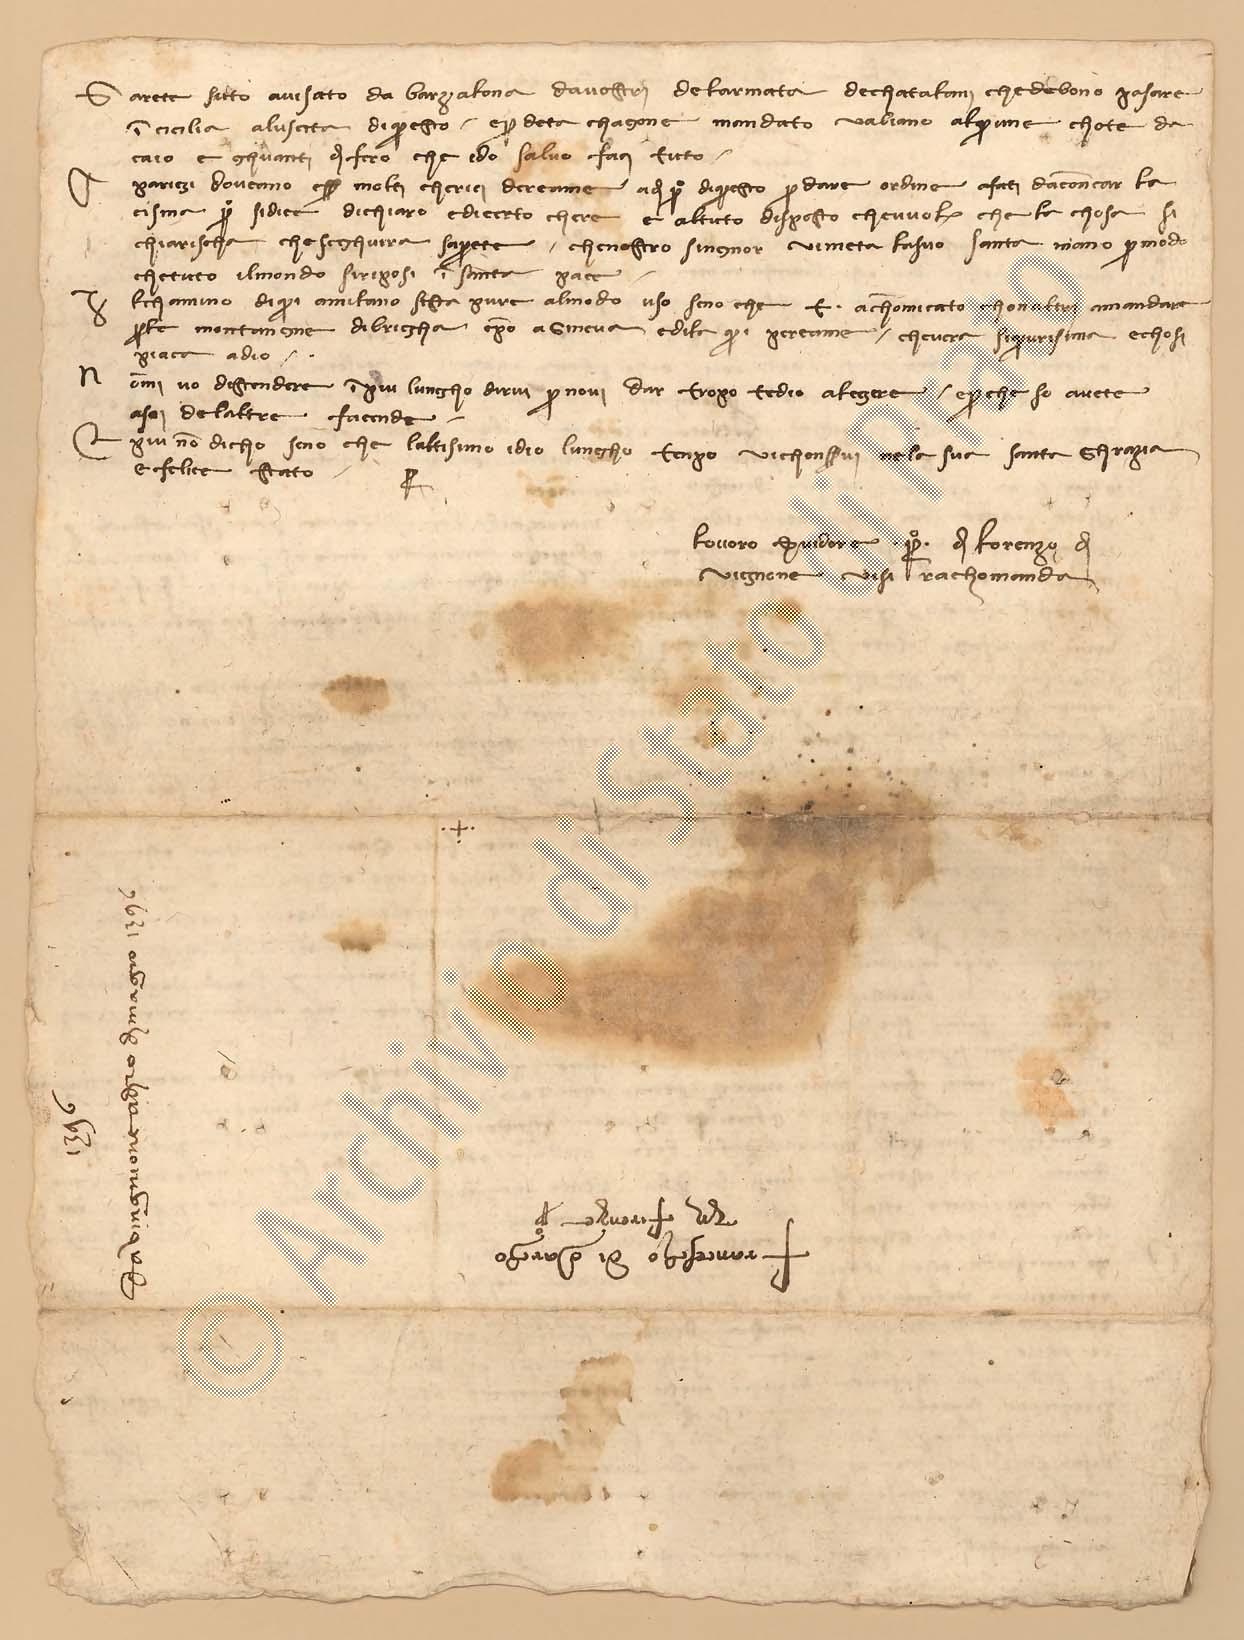 Sarete suto avisato da barzalona davostri delarmata dechatalani chedebono pasare
in cicilia aluscita di questo / e per deta chagone mandato valiano alquune chote da
caio e ghuanti di fero che idio salvo faci tuto /
A parigi doveano molti cherici dereame adi po di questo per dare ordine afati daconcar la
cisma si dice dichiaro e di certo chere e altuto disposto che vuole che la chosa si
chiarischa che seghuira saprete / che nostro singnor vi meta la suo santa mano per modo
che tuto il mondo si riposi in santa pace /
Il chamino di qui a milano sista pure al modo uso seno che chomicato chonaltri a mandare
per le montangne di brigha e poi a Gineva e di la qui per reame / che vera sichurisima e chosi
piaca a dio /
Nonmi vo distendere in piu lungho dirvi per non vi dar tropo tedio a legere / e perche so avete
asai de laltre facende /
Q piu non dicho seno che laltisimo idio lungho tenpo vi chonservi ne la sua santa Ghrazia
e felice stato /
lo vostro servidore di lorenzo di
vignone visi rachomanda
Francescho di Marcho
in Firenze
Da vingnone a di 10 di magio 1396
1396
© Archivio di Stato di Prato